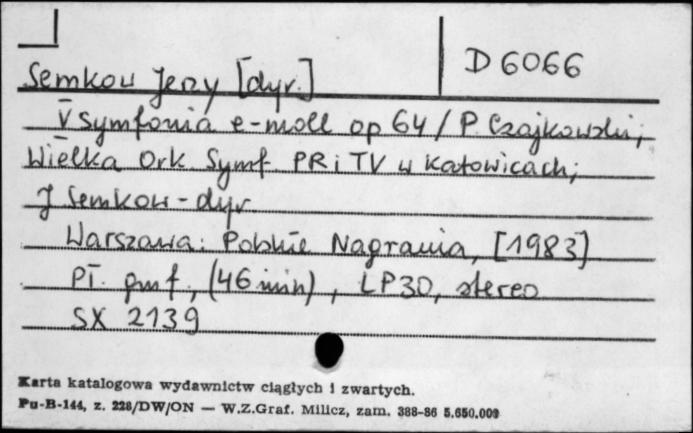 D 6066
Semkow Jerzy [dyr.]
V Symfonia e-moll op 64 / P. Czajkowski;
Wielka Ork. Symf. PR i TV w Katowicach;
J Semkow - dyr
Warszawa: Polskie Nagrania, [1983]
Pł. gmf., (46 min), LP30, stereo
SX 2139
Karta katalogowa wydawnictw ciągłych i zwartych.
Pu-B-144, z. 228/DW/ON — W.Z.Graf. Milicz, zam. 388-86 5.650.000